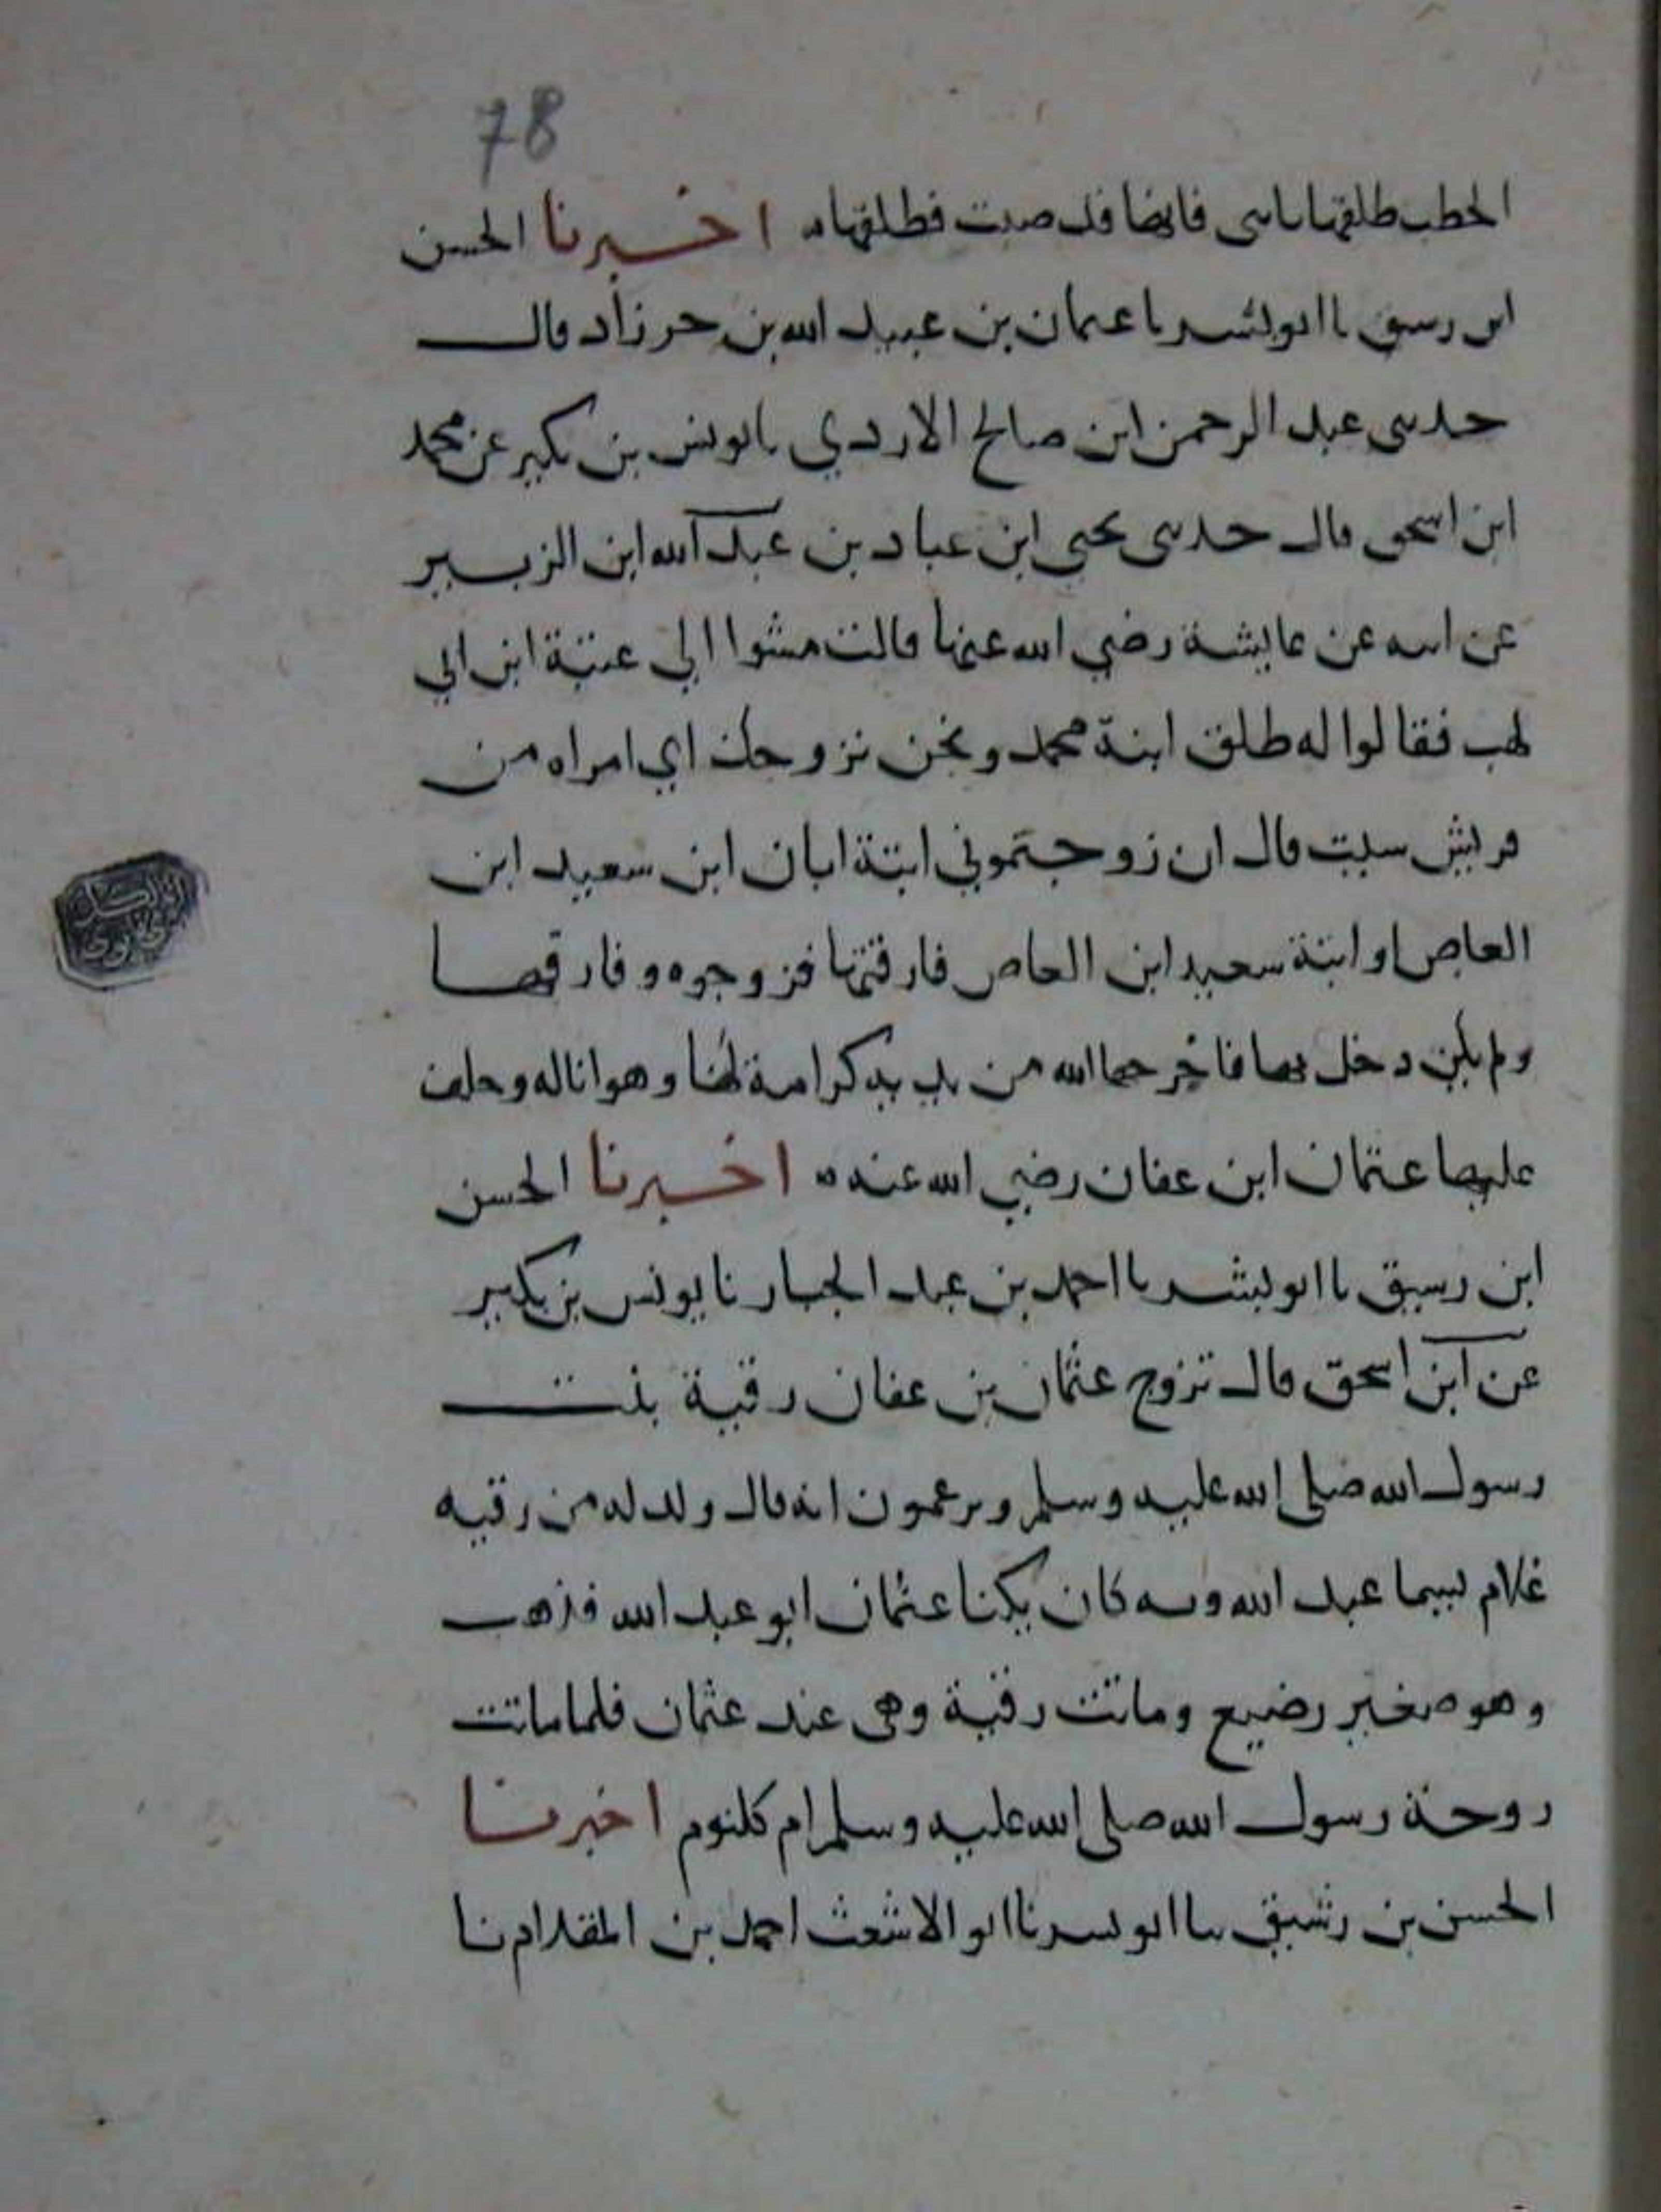 78
الحطب طلقها يابني فانها قد صبت فطلقها ه اخبرنا الحسن
ابن رسيق نا ابو بشر نا عثمان بن عبيد الله بن حرزاد قال
حدثني عبد الرحمن ابن صالح الازدي نا يونس بن بكير عن محمد
ابن اسحق قال حدثني يحيي ابن عباد بن عبد الله ابن الزبير
عن ابيه عن عايشة رضي الله عنها قالت مشوا الي عتبة ابن ابي
لهب فقالوا له طلق ابنة محمد ونحن نزوجك اي امراه من
قريش سيت قال ان زوجتموني ابنة ابان ابن سعيد ابن
العاص او ابنة سعيد ابن العاص فارقتها فزوجوه وفارقها
ولم يكن دخل بها فاخرجها الله من يديه كرامة لها وهوانا له وخلف
عليها عثمان ابن عفان رضي الله عنه ه اخبرنا الحسن
ابن رسيق نا ابو بشر نا احمد بن عبد الجبار نا يونس بن بكير
عن ابن اسحق قال تزوج عثمان بن عفان رقية بنت
رسول الله صلى الله عليه وسلم ويزعمون انه قال ولد له من رقيه
غلام يسما عبد الله وبه كان يكنا عثمان ابو عبد الله فذهب
وهو صغير رضيع وماتت رقية وهي عند عثمان فلما ماتت
زوجة رسول الله صلى الله عليه وسلم ام كلثوم اخبرنا
الحسن بن رشيق نا ابو بشر نا ابو الاشعث احمد بن المقدام نا